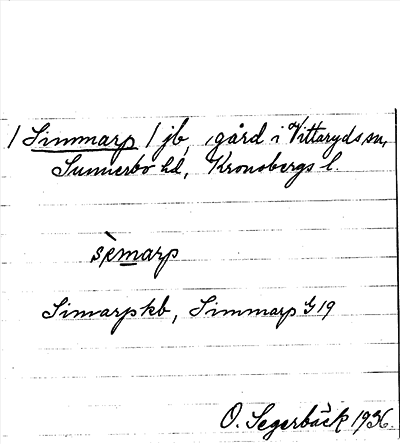 / Simmarp / jb, gård i Vittaryds sn,
Sunnerbo hd, Kronobergs l.
sìmarp
Simarp kb, Simmarp G 19
O. Segerbäck 1936.